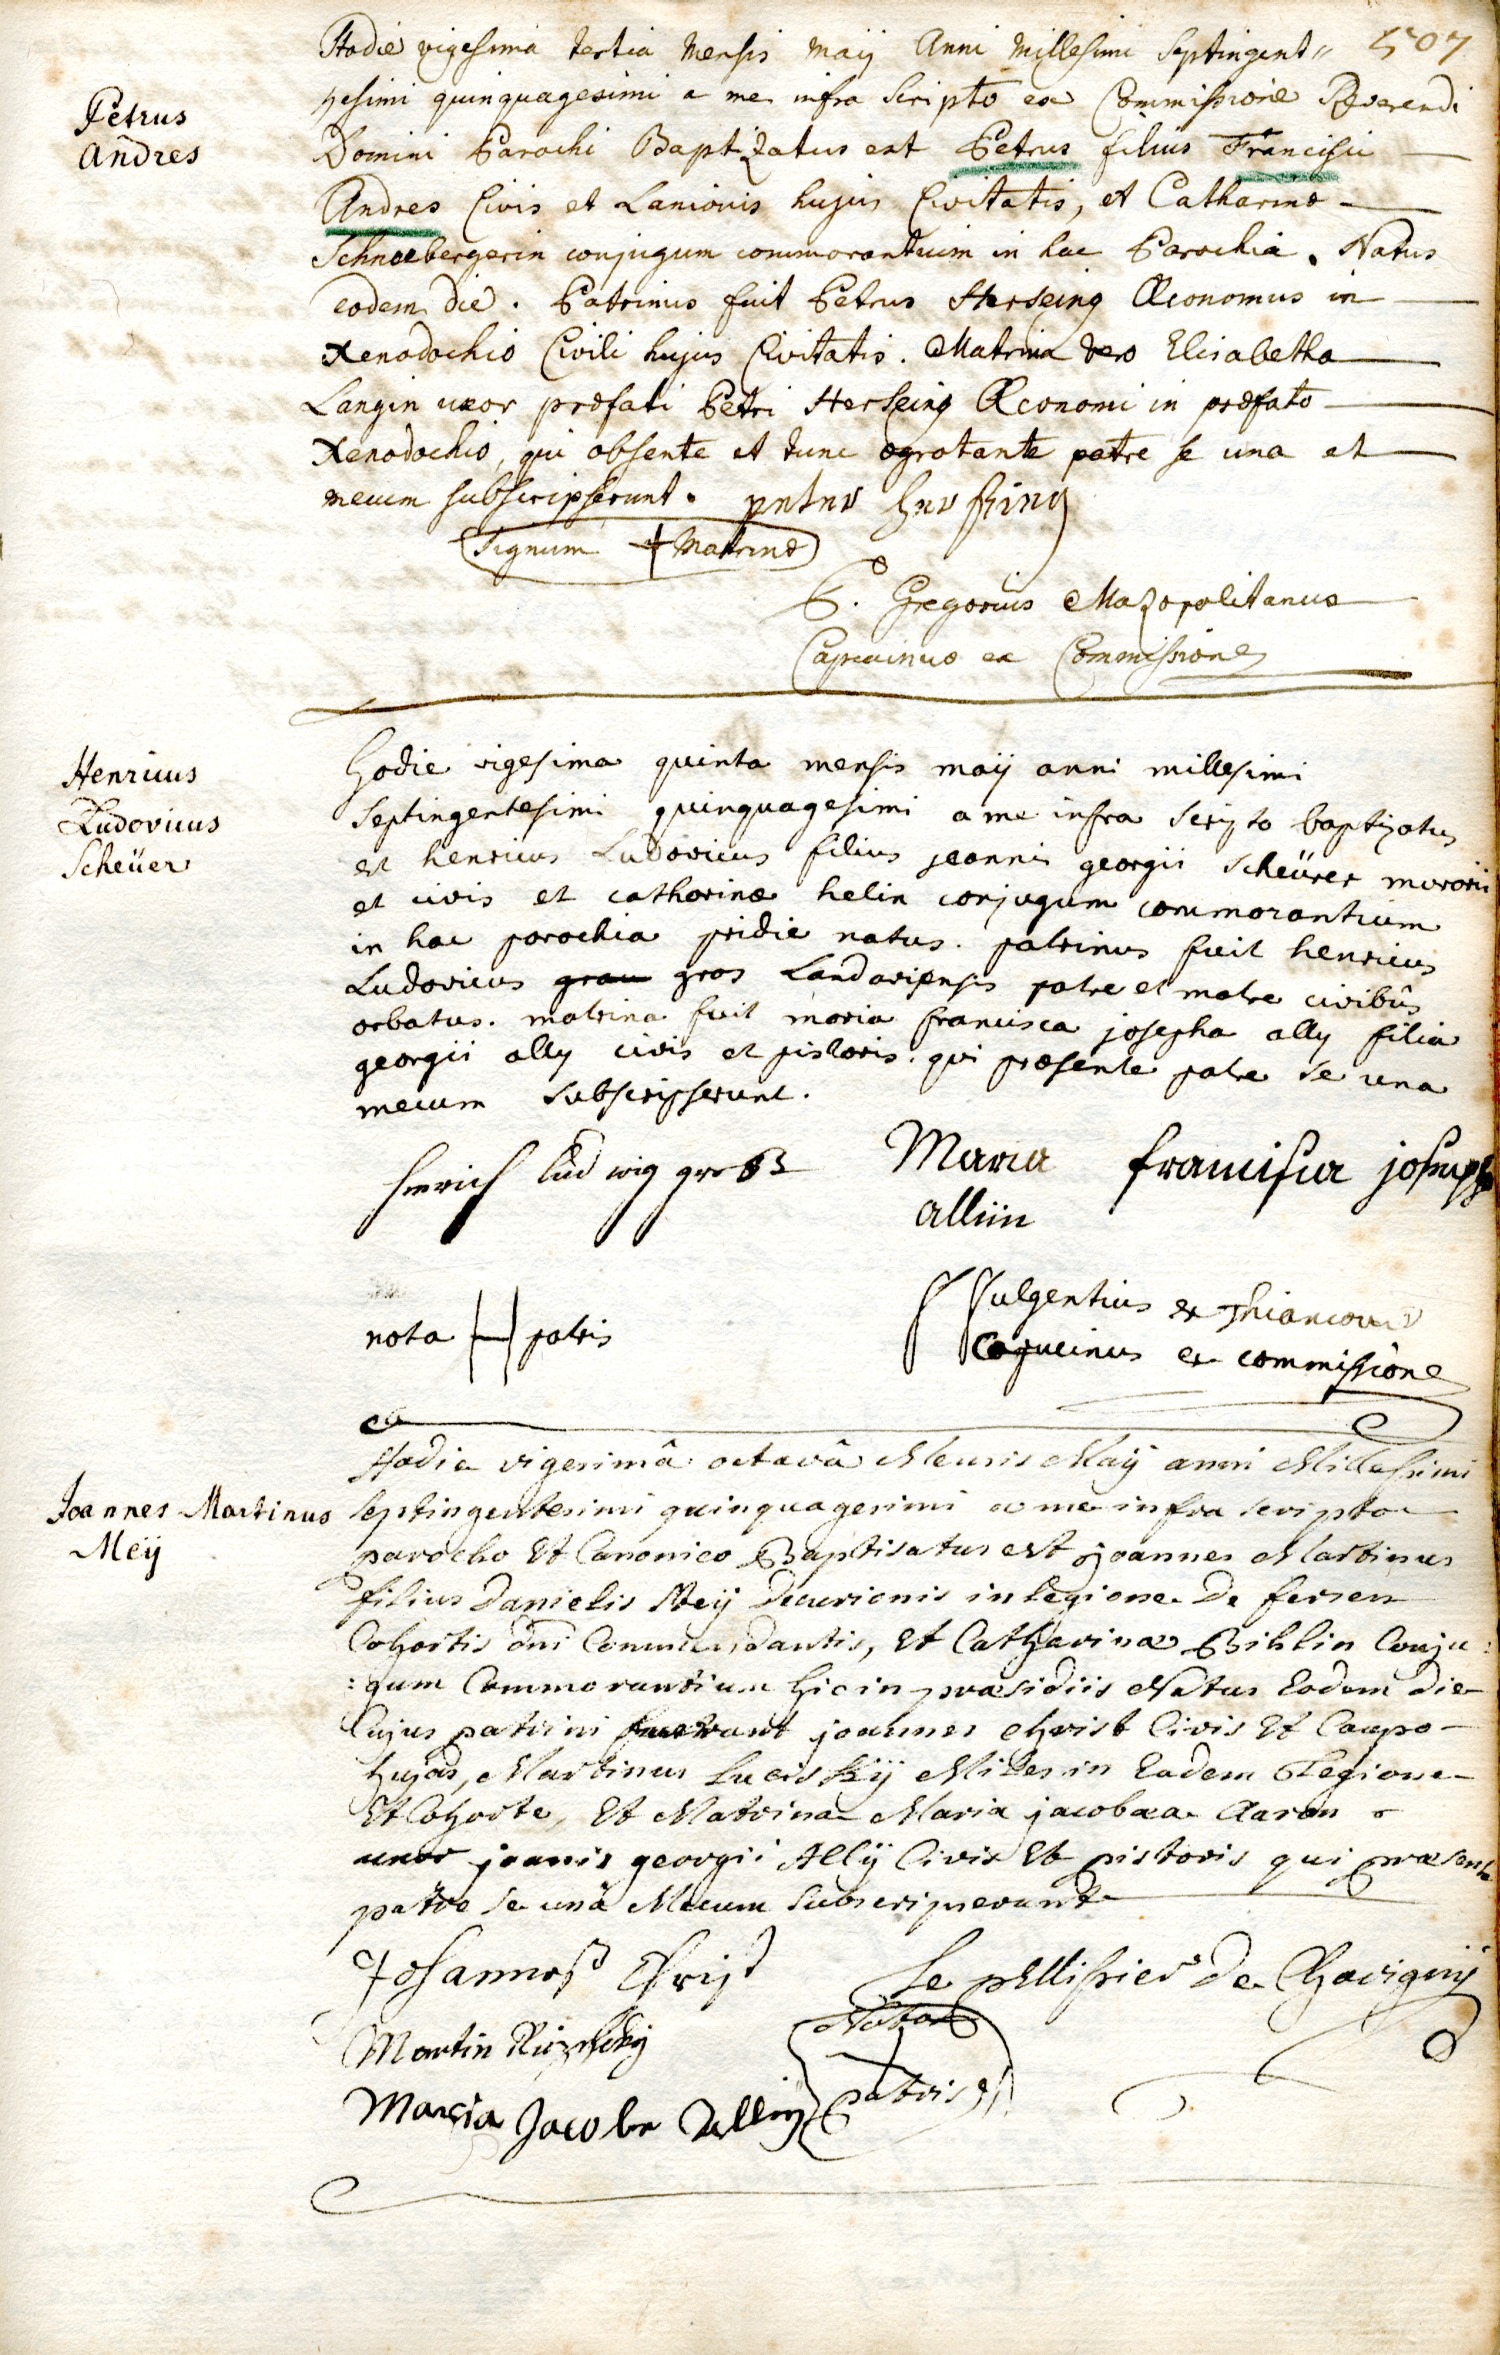 507
Petrus
Andres
Hodie vigesima tertia Mensis Maij Anni Millesimi Septingent"
gesimi quinquagesimi a me infra Scripto ex Commissione Reverendi
Domini Parochi Baptizatus est Petrus filius Francisci
Andres Civis et Lanionis hujus Civitatis, et Catharinæ
Schneebergerin conjugum commorantium in hac Parochia. Natus
eodem die. Patrinus fuit Petrus Herseing Œconomus in
Xenodochio Civili hujus Civitatis. Matrina vero Elisabetha
Langin uxor præfati Petri Herseing Œconomi in præfato
Xenodochio, qui absente et tunc ægrotante patre se una et
mecum subscripserunt. peter
Signum + Matrinæ
P. Gregorius Mazopolitanus
Capucinus ex Commissione
Henricus
Ludovicus
Scheüer
hodie vigesima quinta mensis maij anni millesimi
septingentesimi quinquagesimi a me infra scripto baptizatus
est henricus Ludovicus filius joannis georgii scheürer murarii
et civis et catharinæ helin conjugum commorantium
in hac parochia pridie natus. patrinus fuit henricus
Ludovicus grau gros Landaviensis patre et matre civibûs
orbatus. matrina fuit maria francisca josepha ally filia
georgii ally civis et pistoris. qui præsente patre se una
mecum subscripserunt.
henrich Lud wig groß
Maria francisca joseppha
alliin
nota H patris
P fulgentius ex
Capucinus ex commissione
Joannes Martinus
Meÿ
Hodie vigesimâ octavâ Mensis Maÿ anni Millesimi
septingentesimi quinquagesimi a me infra scripto
parocho Et Canonico Baptisatus est joannes Martinus
filius Danielis Meÿ Decurionis in legione De fersen
Cohortis dni Commendantis, Et Catharinæ Bihlin Conju:
:gum Commorantium hic in præsidiis Natus Eodem die
Cujus patrini fuerunt joannes Christ Civis Et Caupo
hujas, Martinus Miles in Eadem Legione
Et Cohorte, Et Matrina Maria jacobæa Aaron
uxor joannis georgii Allÿ Civis Et pistoris qui præsente
patre se unâ Mecum subscripserunt
Johannes Christ
Le pellissier de Chavignÿ
Martin
Nota
patris
Maria Jacobe Allin